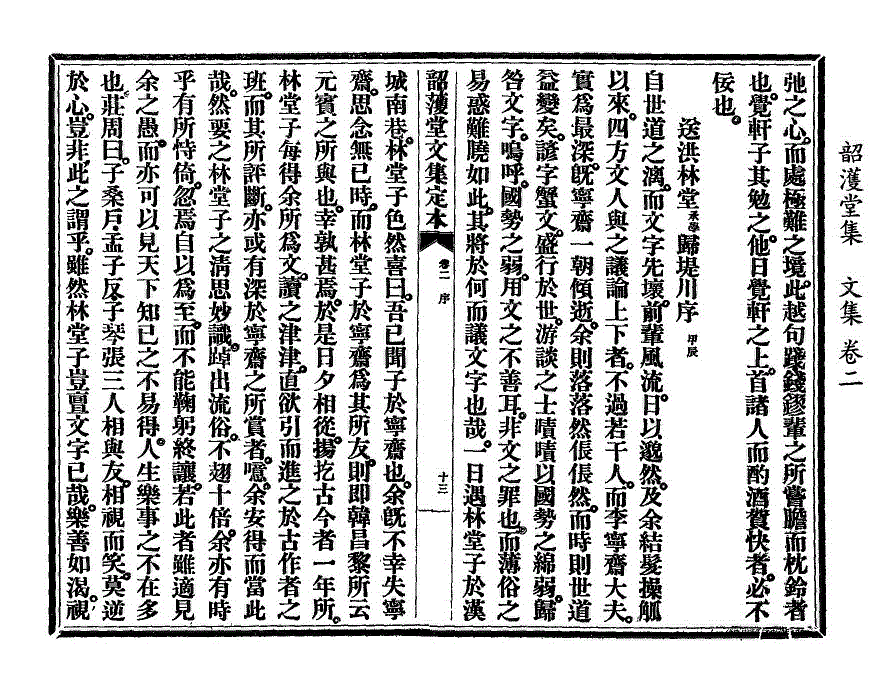 韶濩堂集 文集 卷二
弛之心而處極難之境此越句踐錢鏐輩之所嘗膽而枕鈴者
也覺軒子其勉之他日覺軒之上首諸人而酌酒賀快者必不
佞也
送洪林堂承學歸堤川序 甲辰
自世道之漓而文字先壞前輩風流日以邈然及余結髮操觚
以來四方文人與之議論上下者不過若干人而李寧齋大夫
實爲最深旣寧齋一朝傾逝余則落落然倀倀然而時則世道
益變矣諺字蟹文盛行於世游談之士嘖嘖以國勢之綿弱歸
咎文字嗚呼國勢之弱用文之不善耳非文之罪也而薄俗之
易惑難曉如此其將於何而議文字也哉一日遇林堂子於漢
韶濩堂文集定本 卷二 序 十三
城南巷林堂子色然喜曰吾已聞子於寧齋也余旣不幸失寧
齋思念無已時而林堂子於寧齋爲其所友則即韓昌黎所云
元賓之所與也幸孰甚焉於是日夕相從揚扢古今者一年所
林堂子每得余所爲文讀之津津直欲引而進之於古作者之
班而其所評斷亦或有深於寧齋之所賞者噫余安得而當此
哉然要之林堂子之淸思妙識踔出流俗不翅十倍余亦有時
乎有所恃倚忽焉自以爲至而不能鞠躬終讓若此者雖適見
余之愚而亦可以見天下知已之不易得人生樂事之不在多
也莊周曰子桑戶孟子反子琴張三人相與友相視而笑莫逆
於心豈非此之謂乎雖然林堂子豈亶文字已哉樂善如渴視